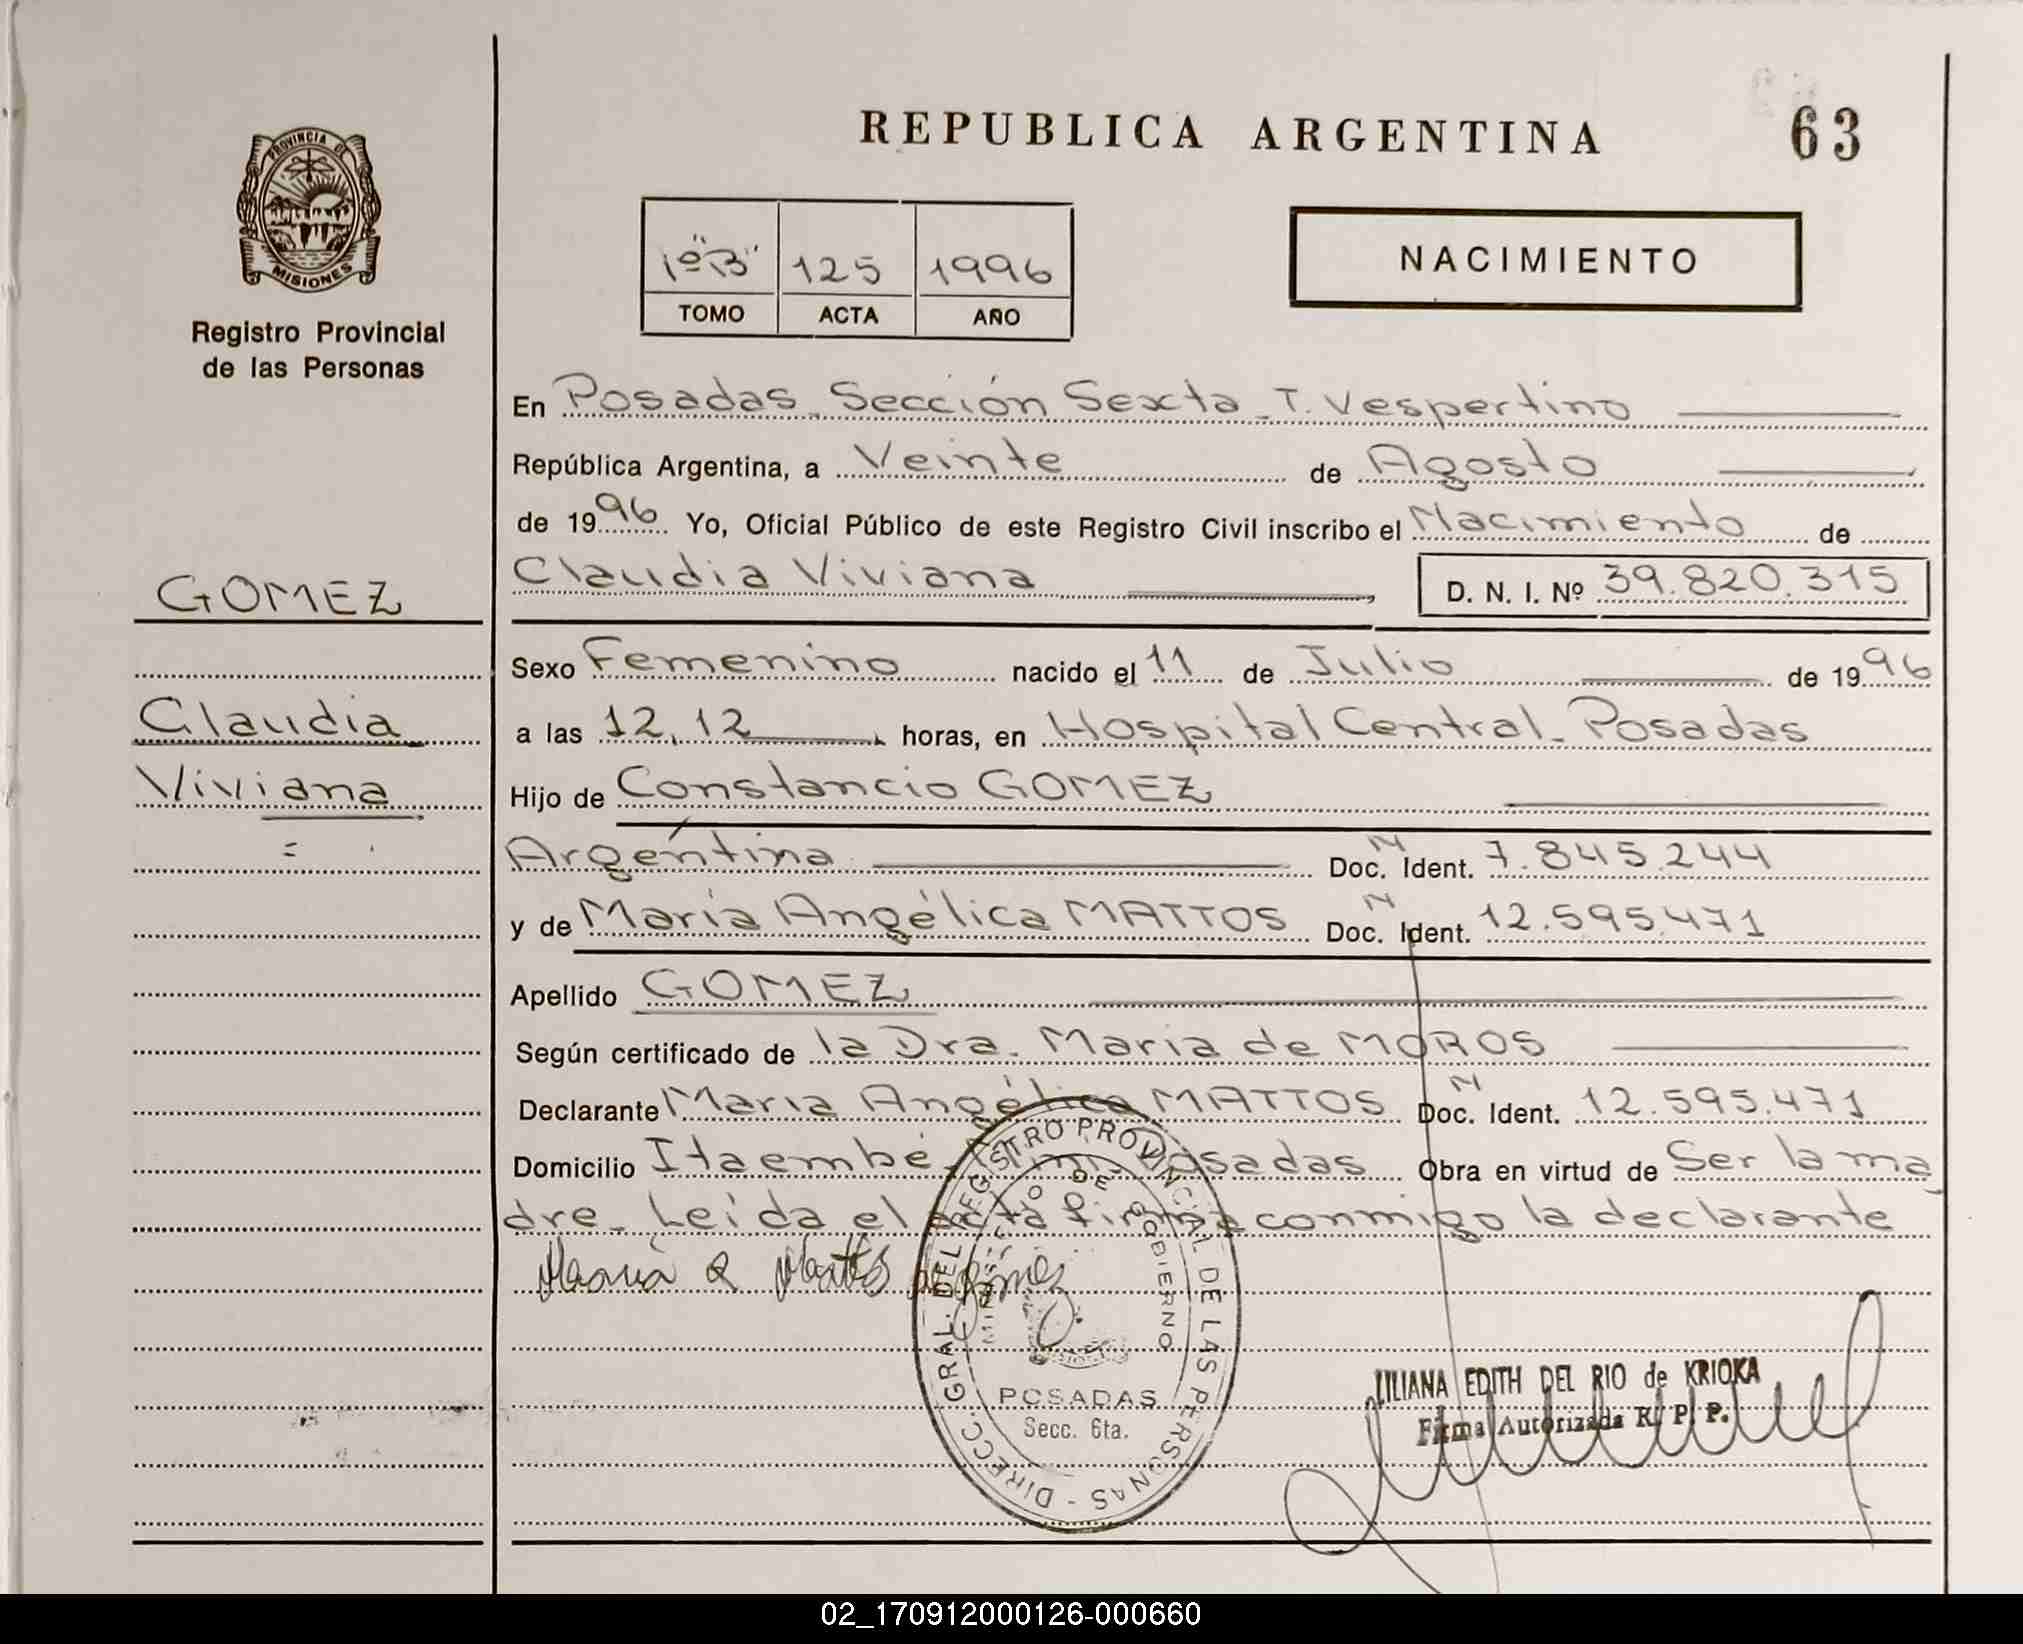 REPUBLICA ARGENTINA
63
PROVINCIA DE
MISIONES
Registro Provincial
de las Personas
1º "B" 125 1996
TOMO ACTA AÑO
NACIMIENTO
En Posadas Sección Sexta - T. Vespertino
República Argentina, a Veinte de Agosto
de 1996 Yo, Oficial Público de este Registro Civil inscribo el Nacimiento de
GOMEZ
Claudia Viviana D. N. I. Nº 39.820.315
Sexo Femenino nacido el 11 de Julio de 1996
Claudia
a las 12,12 horas, en Hospital Central - Posadas
Viviana
Hijo de Constancio GOMEZ
Argentina Doc. N Ident. 7.845.244
y de María Angélica MATTOS Doc. N Ident. 12.595.471
Apellido GOMEZ
Según certificado de la Dra. Maria de MOROS
Declarante María Angélica MATTOS Doc. N Ident. 12.595.471
Domicilio Itaembé Posadas Obra en virtud de Ser la ma
dre - Leída el acta firma conmigo la declarante
María Mattos
DIRECC. GRAL. DEL REGISTRO PROVINCIAL DE LAS PERSONAS
MINISTERIO DE GOBIERNO
POSADAS
Secc. 6ta.
LILIANA EDITH DEL RIO de KRIOKA
Firma Autorizada R. P. P.
02_170912000126-000660